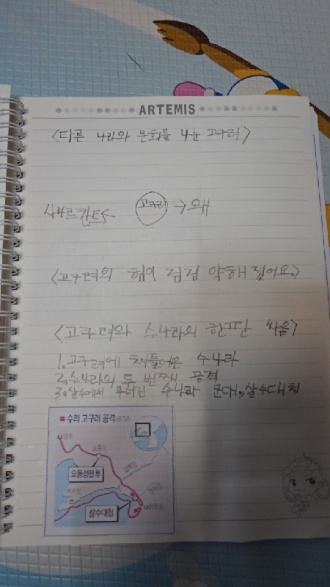 ARTEMIS
<다른 나라와 문화를 나눈 고구려>
사마르칸트← 고구려 → 왜
<고구려의 힘이 점점 약해졌어요>
<고구려와 수나라의 한판 싸움>
1. 고구려에 쳐들어온 수나라
2. 수나라의 두 번째 공격
3. 살수에서 무너진 수나라 군대, 살수대첩
■ 수의 고구려 공격
요동성전투
살수대첩